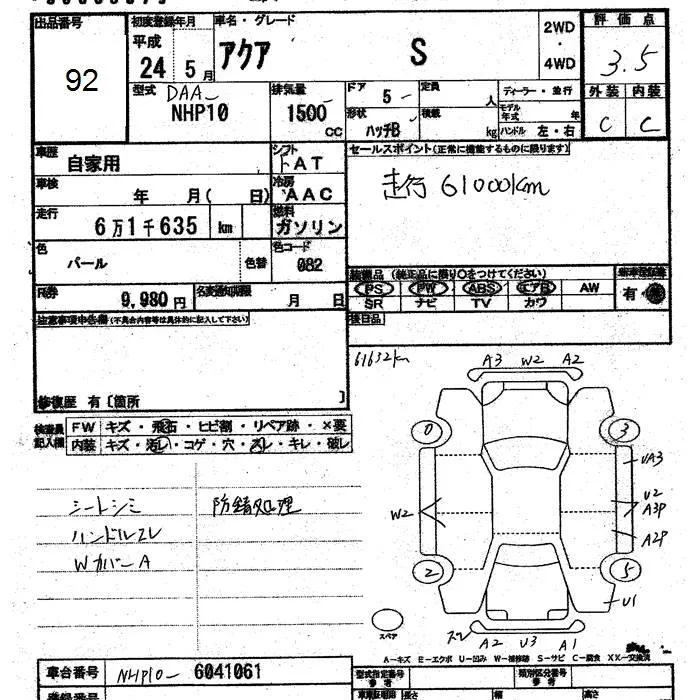 出品番号 初度登録年月 車名・グレード 2WD・4WD 評価点
92 平成 24 5月 アクア S 3.5
型式 DAA- NHP10 排気量 1500 CC ドア 5 形状 ハッチB 定員 人 積載 kg ディーラー・並行 モデル年式 年 ハンドル 左・右 外装 C 内装 C
車歴 自家用 シフト AT
セールスポイント(正常に機能するものに限ります)
走行 61000km
車検 年 月( 日) 冷房 AAC
走行 6万1千635 km 燃料 ガソリン
色 パール 色替 色コード 082
装備品(純正品に限り○をつけてください)
PS PW ABS エアB AW 有
SR ナビ TV カワ
R券 9,980円 名変通知期限 月 日
後日品
注意事項申告欄(不具合内容等は具体的に記入して下さい)
修復歴 有〔箇所 〕
61632km
A3 W2 A2
検査員記入欄 FW キズ・飛石・ヒビ割・リペア跡・×要
内装 キズ・汚レ・コゲ・穴・スレ・キレ・破レ
0 3
UA3
シートシミ 防錆処理
ハンドルスレ
Wカバー A
W2
U2
A3P
A2P
2 5
U1
スペア
スレ A2 U3 A1
A-キズ E-エクボ U-凹み W-補修跡 S-サビ C-腐食 XX-交換済
車台番号 NHP10- 6041061
型式指定番号 類別区分番号
登録番号 長さ 幅 高さ